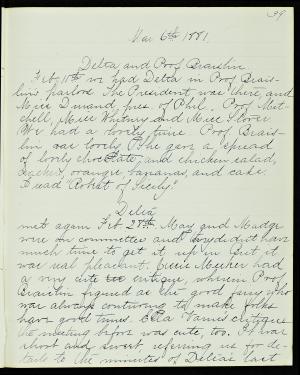 39
Mar 6th 1881.
Delta and Prof Braislin
Feb 18th we had Delta in Prof Brais-
lin's parlor. The President was there, and
Miss Dwand, pres. of Phil. Prof Mit-
chell, Miss Whitney and Miss Glover.
We had a lovely time. Prof Brais-
lin was lovely & she gave a spread
of lovely chocolate, and chicken salad,
oranges, bananas, and cake.
Read "Robert of Sicily"
Delta
met again Feb 28th. May and Madge
were on committee and they didn't have
much time to get it up in but it
was real pleasant. Mecker had
a very cute critique, wherein Prof
Braislin figured as the good fairy who
was always contriving to make folks
have good times. critique
the meeting before was cute, too. It was
short and sweet referring us for de-
tails to the minutes of Delta's last